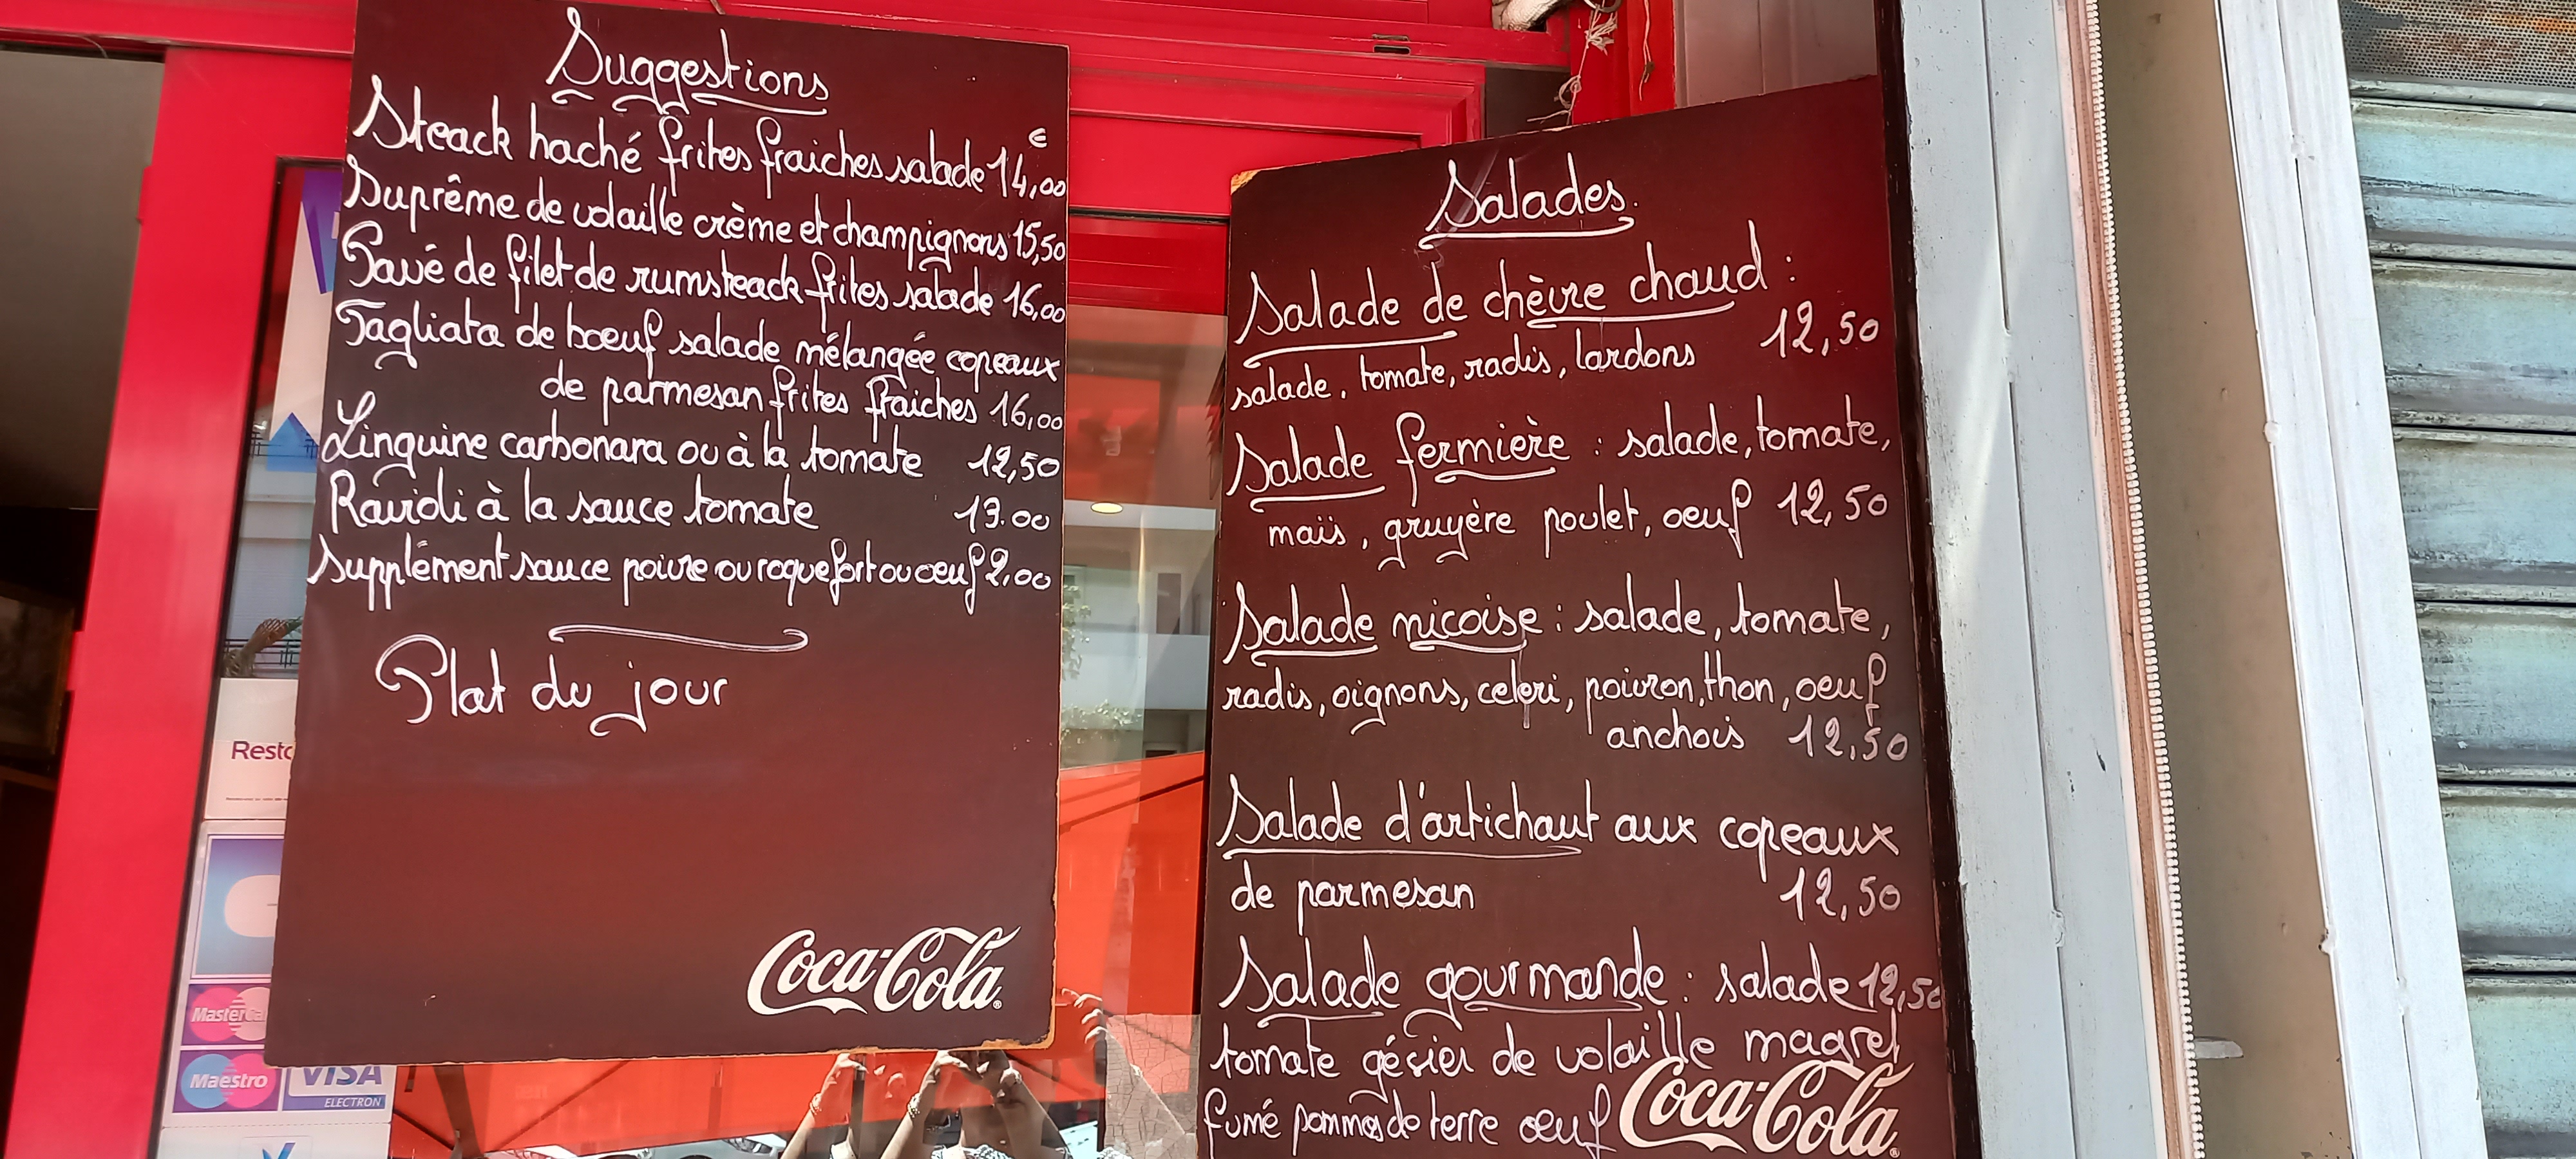 Suggestions
Steack haché frites fraiches salade 14,00 €
Suprême de volaille crème et champignons 15,50
Pavé de filet de rumsteack frites salade 16,00
Tagliata de boeuf salade mélangée copeaux
de parmesan frites fraiches 16,00
Linguine carbonara ou à la tomate 12,50
Ravioli à la sauce tomate 13.00
Supplément sauce poivre ou roquefort ou oeuf 2,00
Plat du jour
Coca-Cola
Salades
Salade de chèvre chaud :
salade, tomate, radis, lardons 12,50
Salade fermière : salade, tomate,
maïs, gruyère poulet, oeuf 12,50
Salade nicoise : salade, tomate,
radis, oignons, celeri, poivron, thon, oeuf
anchois 12,50
Salade d'artichaut aux copeaux
de parmesan 12,50
Salade gourmande : salade 12,50
tomate gésier de volaille magret
fumé pommes de terre oeuf
Coca-Cola
Maestro
VISA
ELECTRON